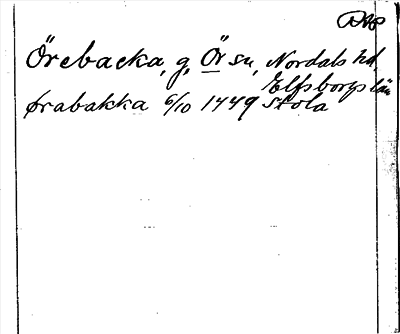 Örebacka, g, Ör sn, Nordals hd
Elfsborgs län
ørabakka 6/10 1449 Stola